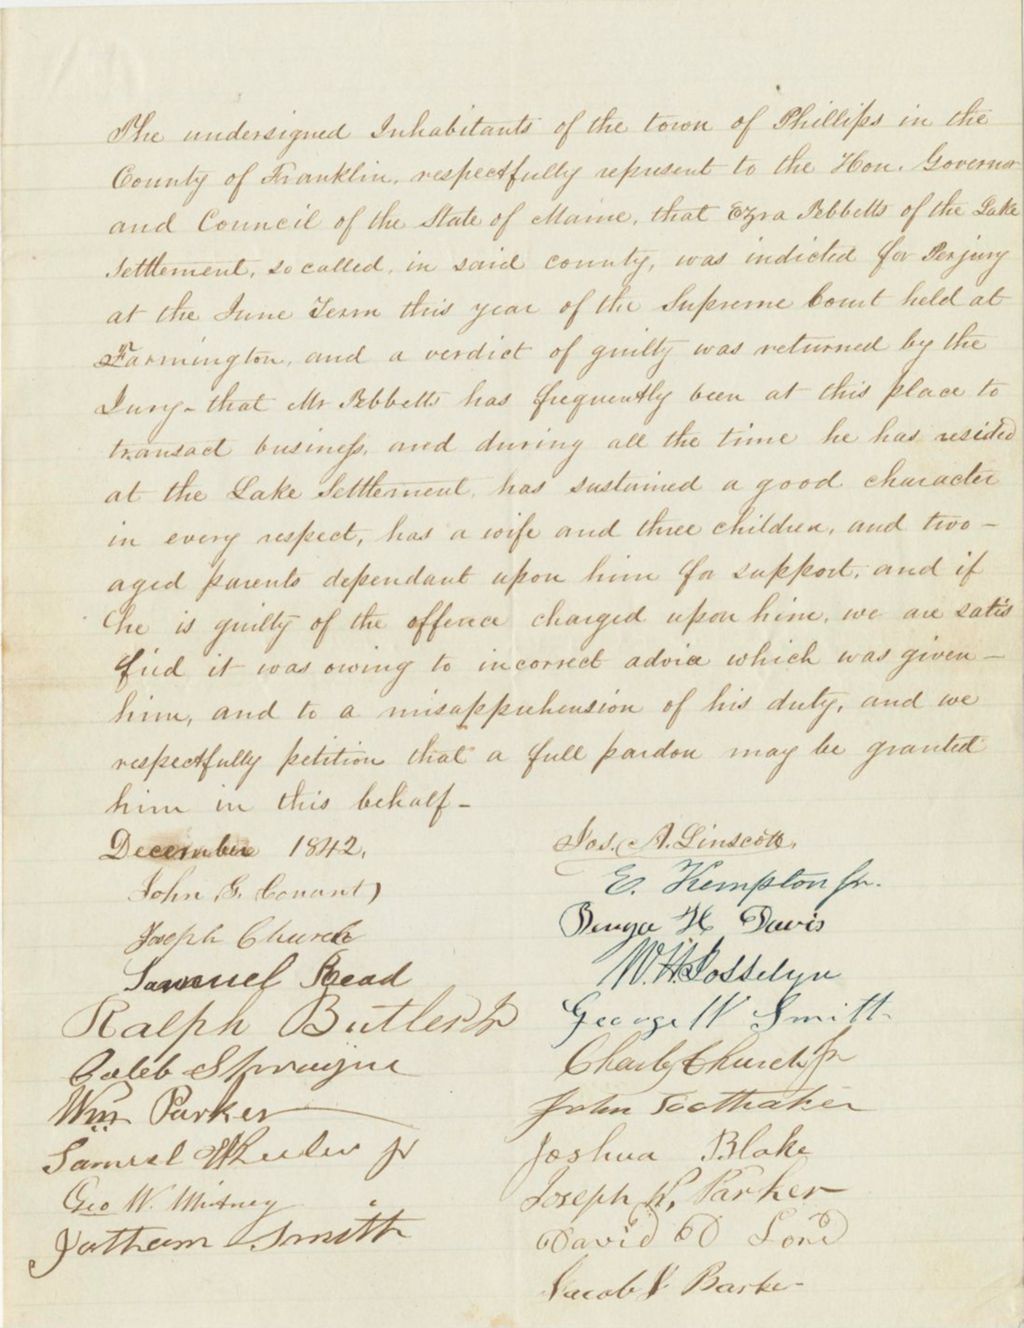 The undersigned Inhabitants of the town of Phillips in the
County of Franklin, respectfully represent to the Hon. Governor
and Council of the State of Maine, that Ezra Tebbetts of the Lake
Settlement, so called, in said county, was indicted for Perjury
at the June Term this year of the Supreme Court held at
Farmington, and a verdict of guilty was returned by the
Jury - that Mr Tebbetts has frequently been at this place to
transact business, and during all the time he has resided
at the Lake Settlement, has sustained a good character
in every respect, has a wife and three children, and two -
aged parents dependant upon him for support, and if
he is guilty of the offence charged upon him, we are satis
fied it was owing to incorrect advice which was given -
him, and to a misapprehension of his duty, and we
respectfully petition that a full pardon may be granted
him in this behalf -
December 1842.
John G. Conant
Joseph Church
Samuel Read
Ralph Butler Jr
Caleb Sprague
Wm Parker
Samuel Wheeler Jr
Geo W. Whitney
Jotham Smith
Jos. A. Linscott.
E. Kempton Jr.
Benja H Davis
W. H. Josselyn
George W Smith
Charles Church Jr
John Toothaker
Joshua Blake
Joseph Parker
David D Lord
Jacob Barker